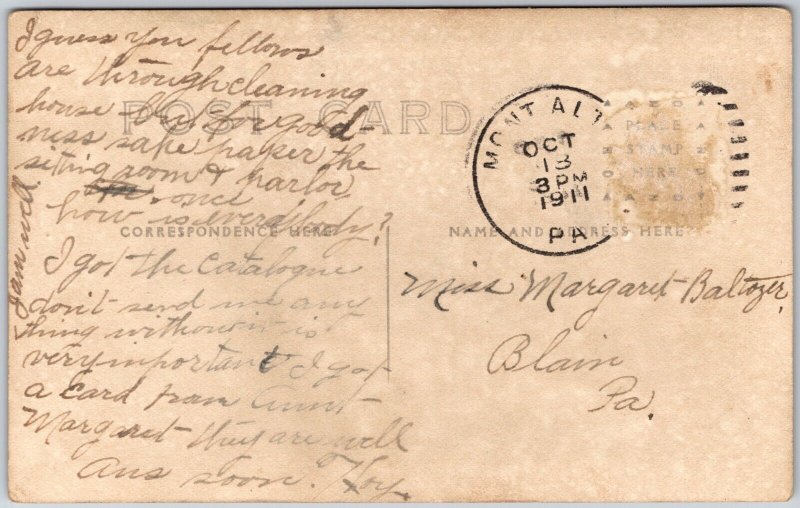 I guess you fellows
are through cleaning
house but for good-
ness sake paper the
siting room & parlor
once
how is everybody?
I am well
I got the Catalogue
don't send me any
thing without it is
very important I got
a card from Aunt
Margaret they are well
Ans soon. Hoy.
POST CARD
CORRESPONDENCE HERE
NAME AND ADDRESS HERE
MONT ALT
OCT
13
3 PM
1911
PA
PLACE
STAMP
HERE
Miss Margaret Baltozer,
Blain
Pa.